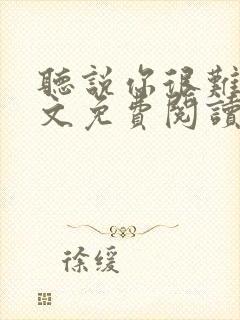 聽說你很難
文免費閱讀
徐缓